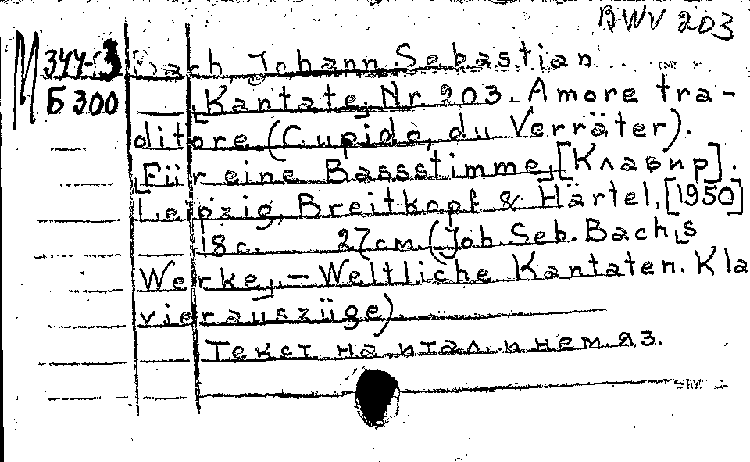 BWV 203
М 344-3 Bach, Johann Sebastian
Б 300 Kantate, Nr 203. Amore tra-
ditore (Cupido, du Verräter).
[Für eine Bassstimme], [Клавир].
Leipzig, Breitkopf & Härtel, [1950]
18 с. 27 см. (Joh. Seb. Bach,s
Werke, - Weltliche Kantaten. Kla
vierauszüge)
Текст на итал. и нем. яз.